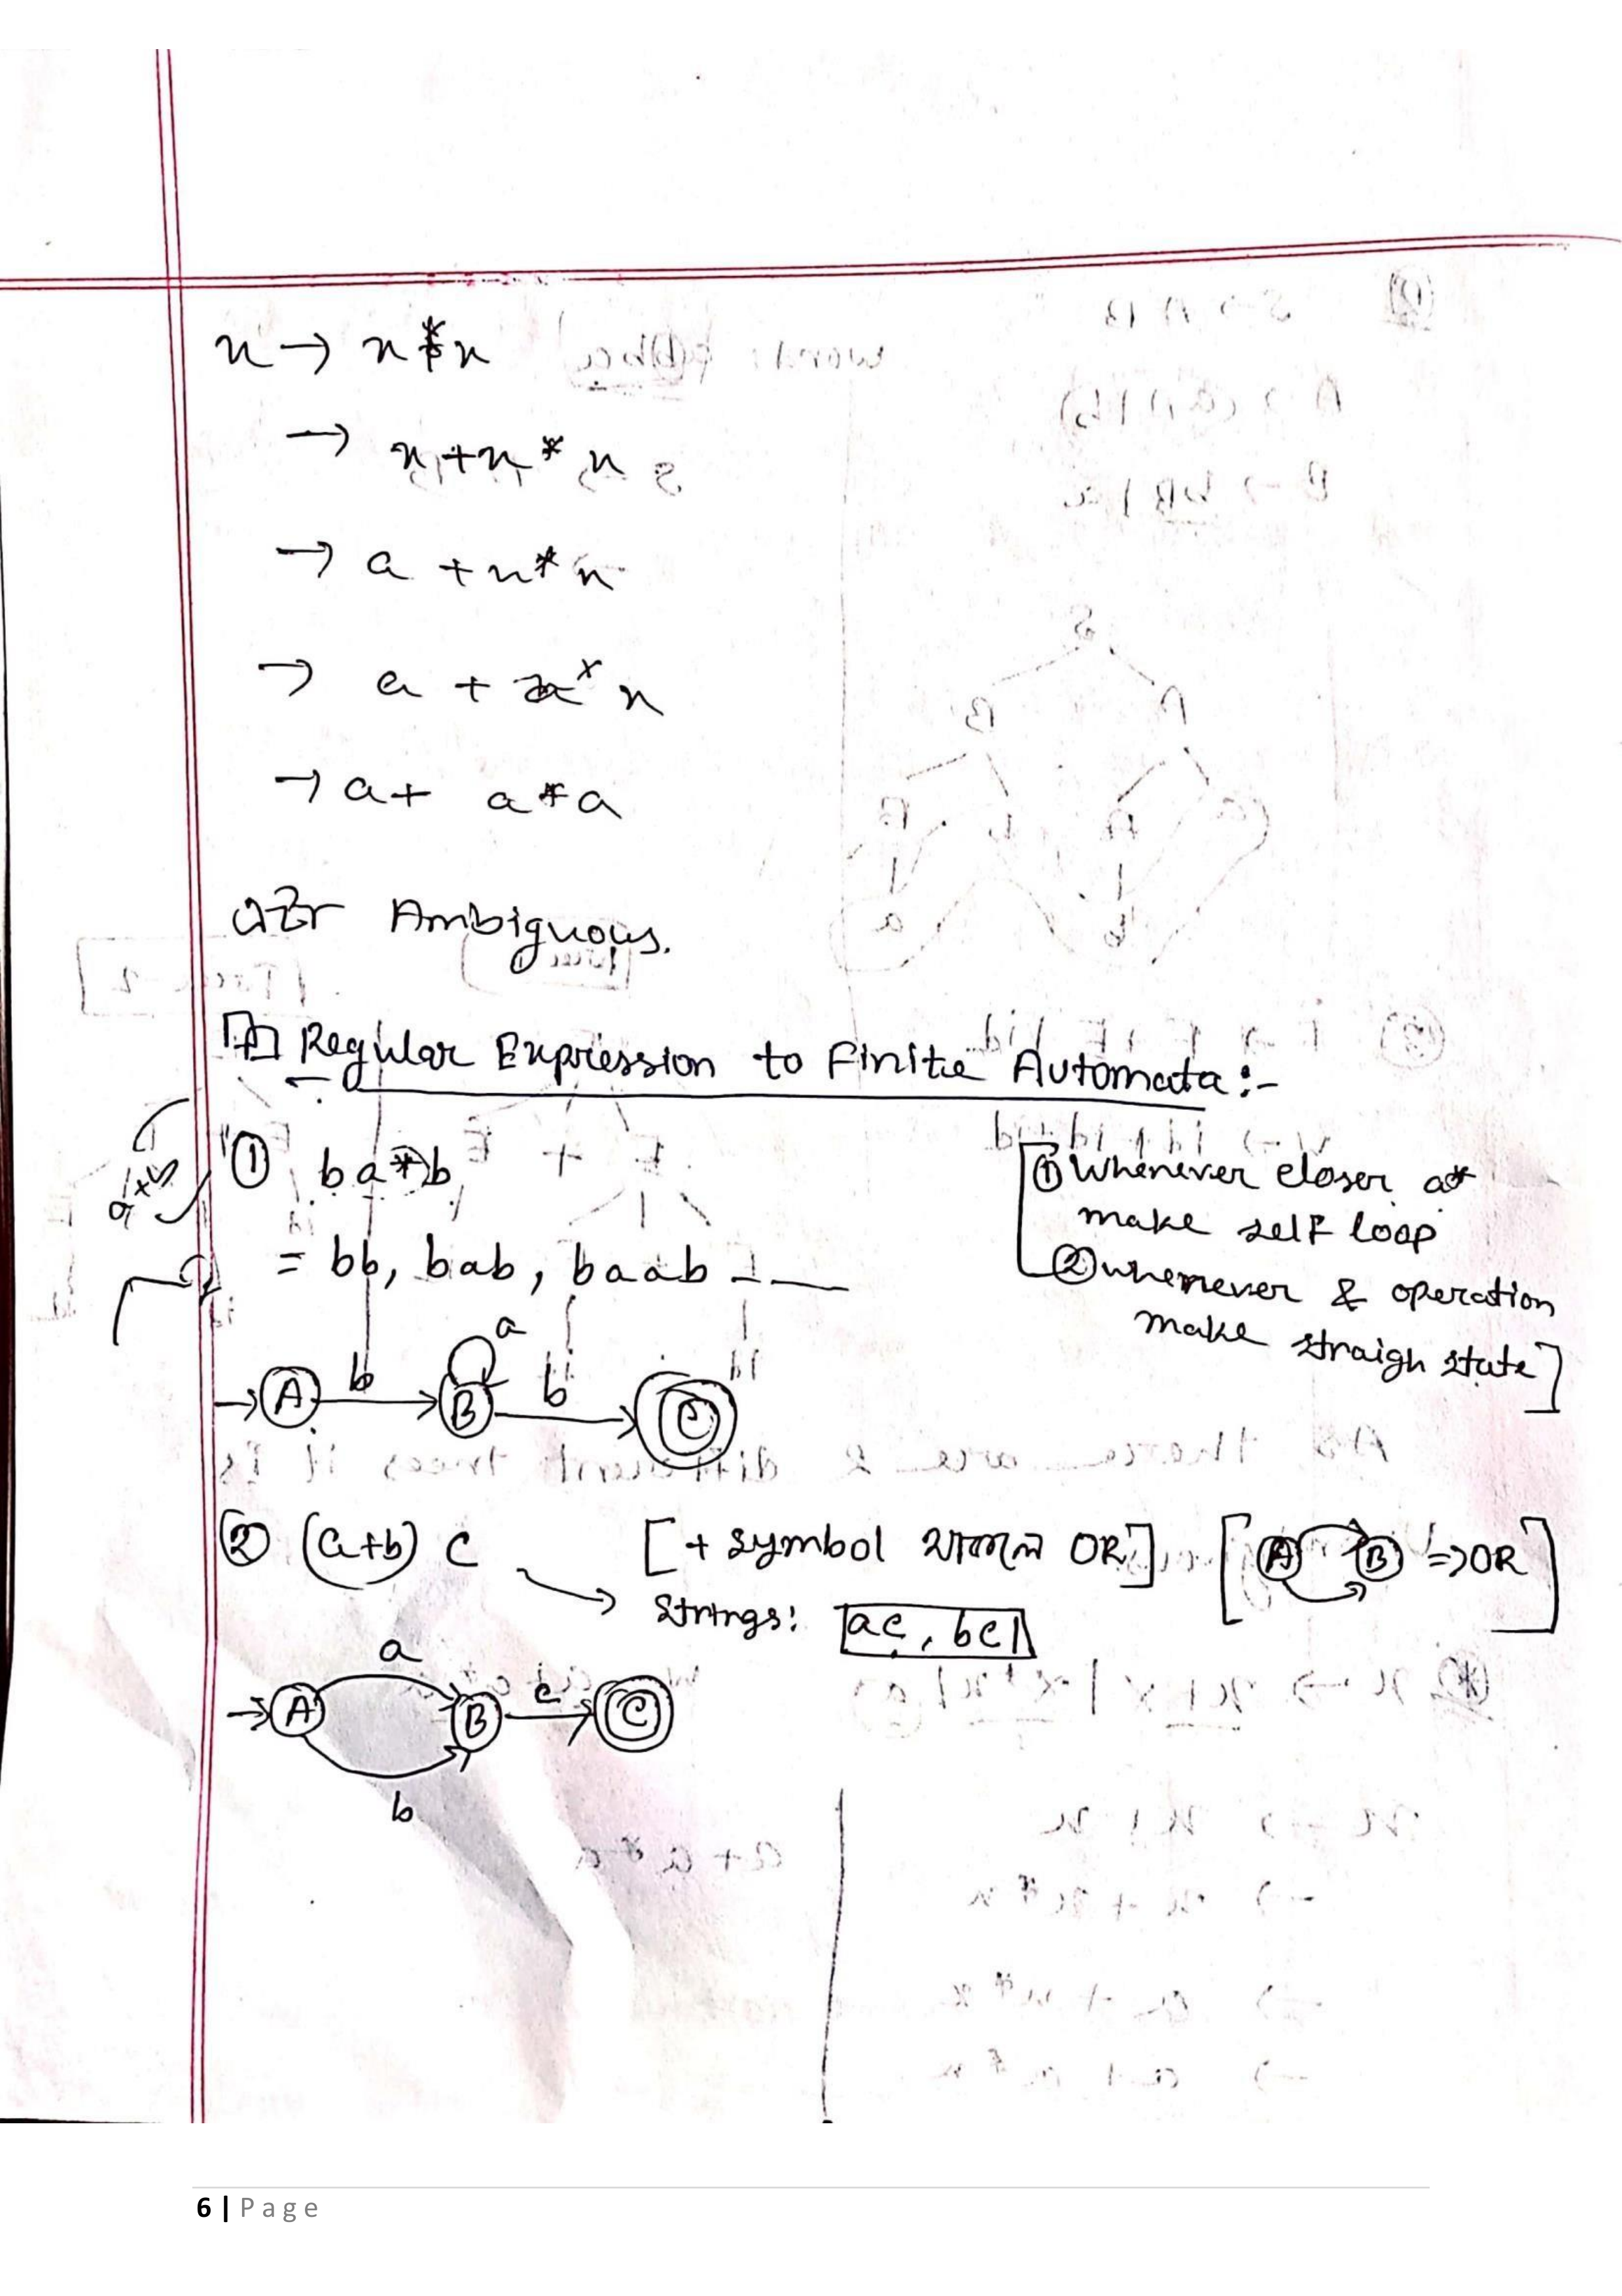 x → x * x
→ x + x * x
→ a + x * x
→ a + a * x
→ a + a * a
Ambiguous.
Regular Expression to Finite Automata :-
① ba*b
① Whenever closer a*
make self loop
= bb, bab, baab - - —
② whenever & operation
make straigh state]
a
b
b
A
B
C
② (a+b) c [+ symbol থাকলে OR] [A B => OR]
Strings: ac, bc
a
A
B
c
C
b
6 | Page